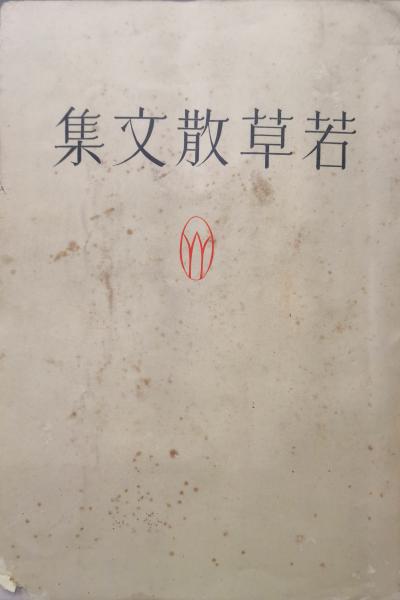 若草散文集